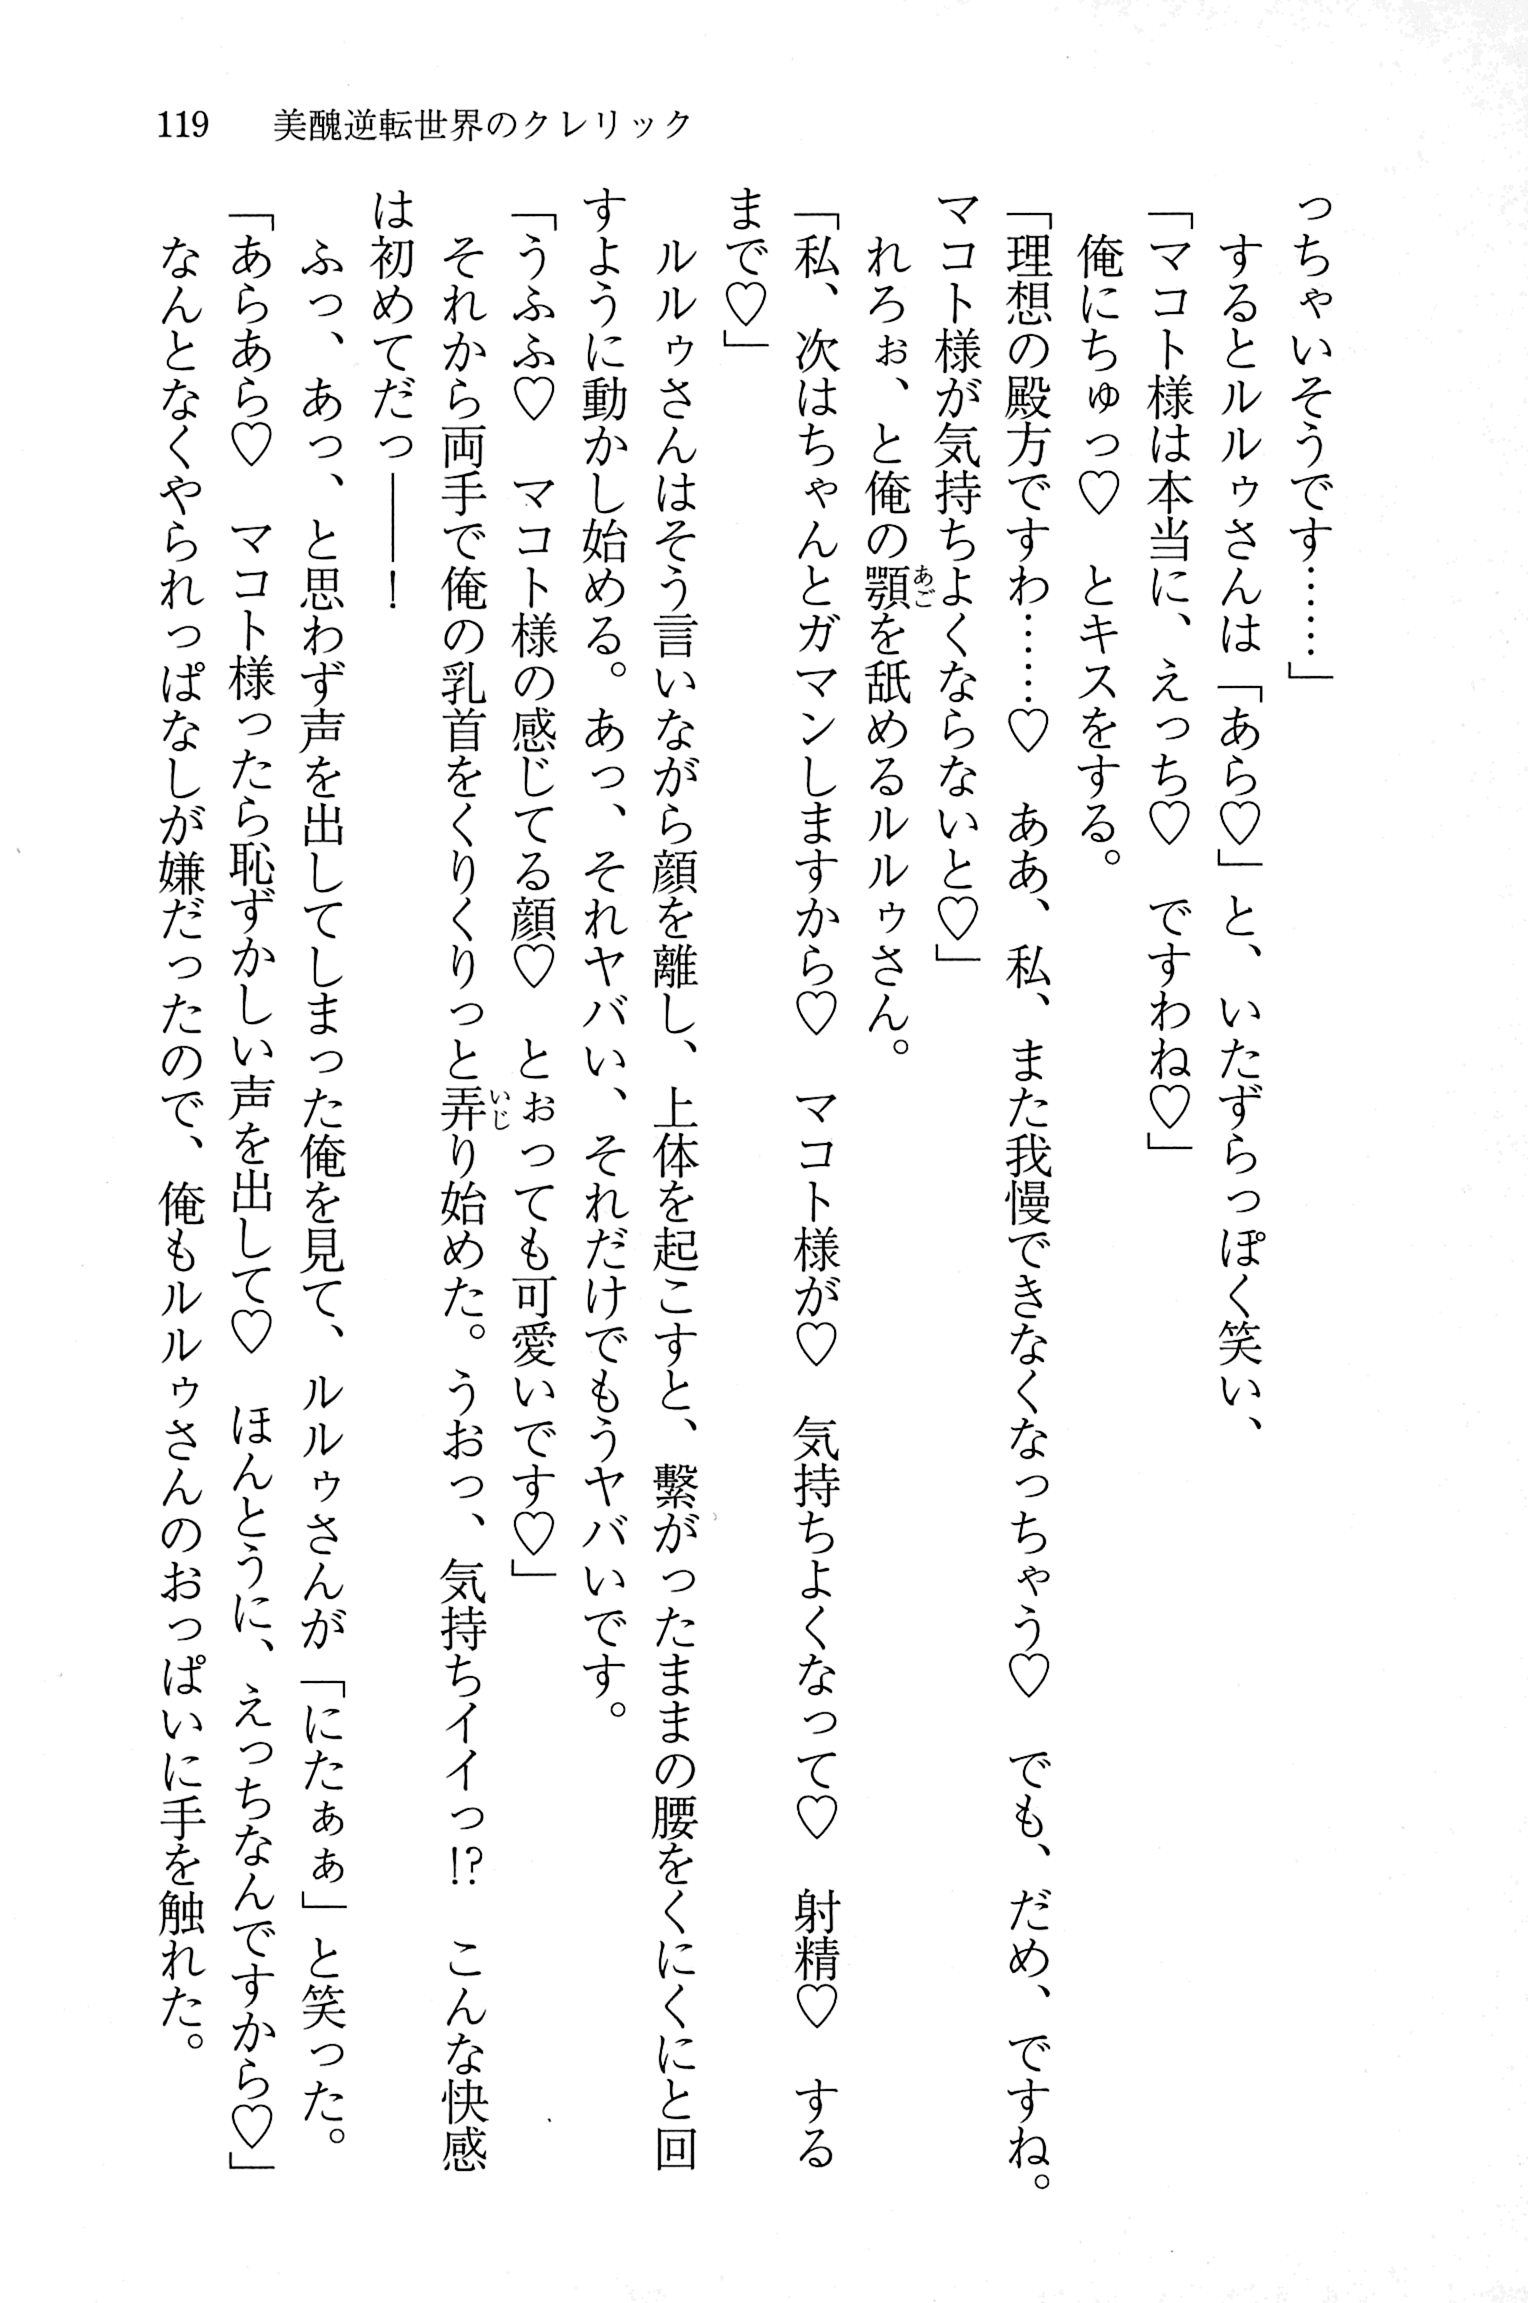 119　美醜逆転世界のクレリック
っちゃいそうです……」
　するとルルゥさんは「あら♡」と、いたずらっぽく笑い、
「マコト様は本当に、えっち♡　ですわね♡」
　俺にちゅっ♡　とキスをする。
「理想の殿方ですわ……♡　ああ、私、また我慢できなくなっちゃう♡　でも、だめ、ですね。
マコト様が気持ちよくならないと♡」
　れろぉ、と俺の顎あごを舐めるルルゥさん。
「私、次はちゃんとガマンしますから♡　マコト様が♡　気持ちよくなって♡　射精♡　する
まで♡」
　ルルゥさんはそう言いながら顔を離し、上体を起こすと、繋がったままの腰をくにくにと回
すように動かし始める。あっ、それヤバい、それだけでもうヤバいです。
「うふふ♡　マコト様の感じてる顔♡　とぉっても可愛いです♡」
　それから両手で俺の乳首をくりくりっと弄いじり始めた。うおっ、気持ちイイっ!?　こんな快感
は初めてだっ――！
　ふっ、あっ、と思わず声を出してしまった俺を見て、ルルゥさんが「にたぁぁ」と笑った。
「あらあら♡　マコト様ったら恥ずかしい声を出して♡　ほんとうに、えっちなんですから♡」
　なんとなくやられっぱなしが嫌だったので、俺もルルゥさんのおっぱいに手を触れた。